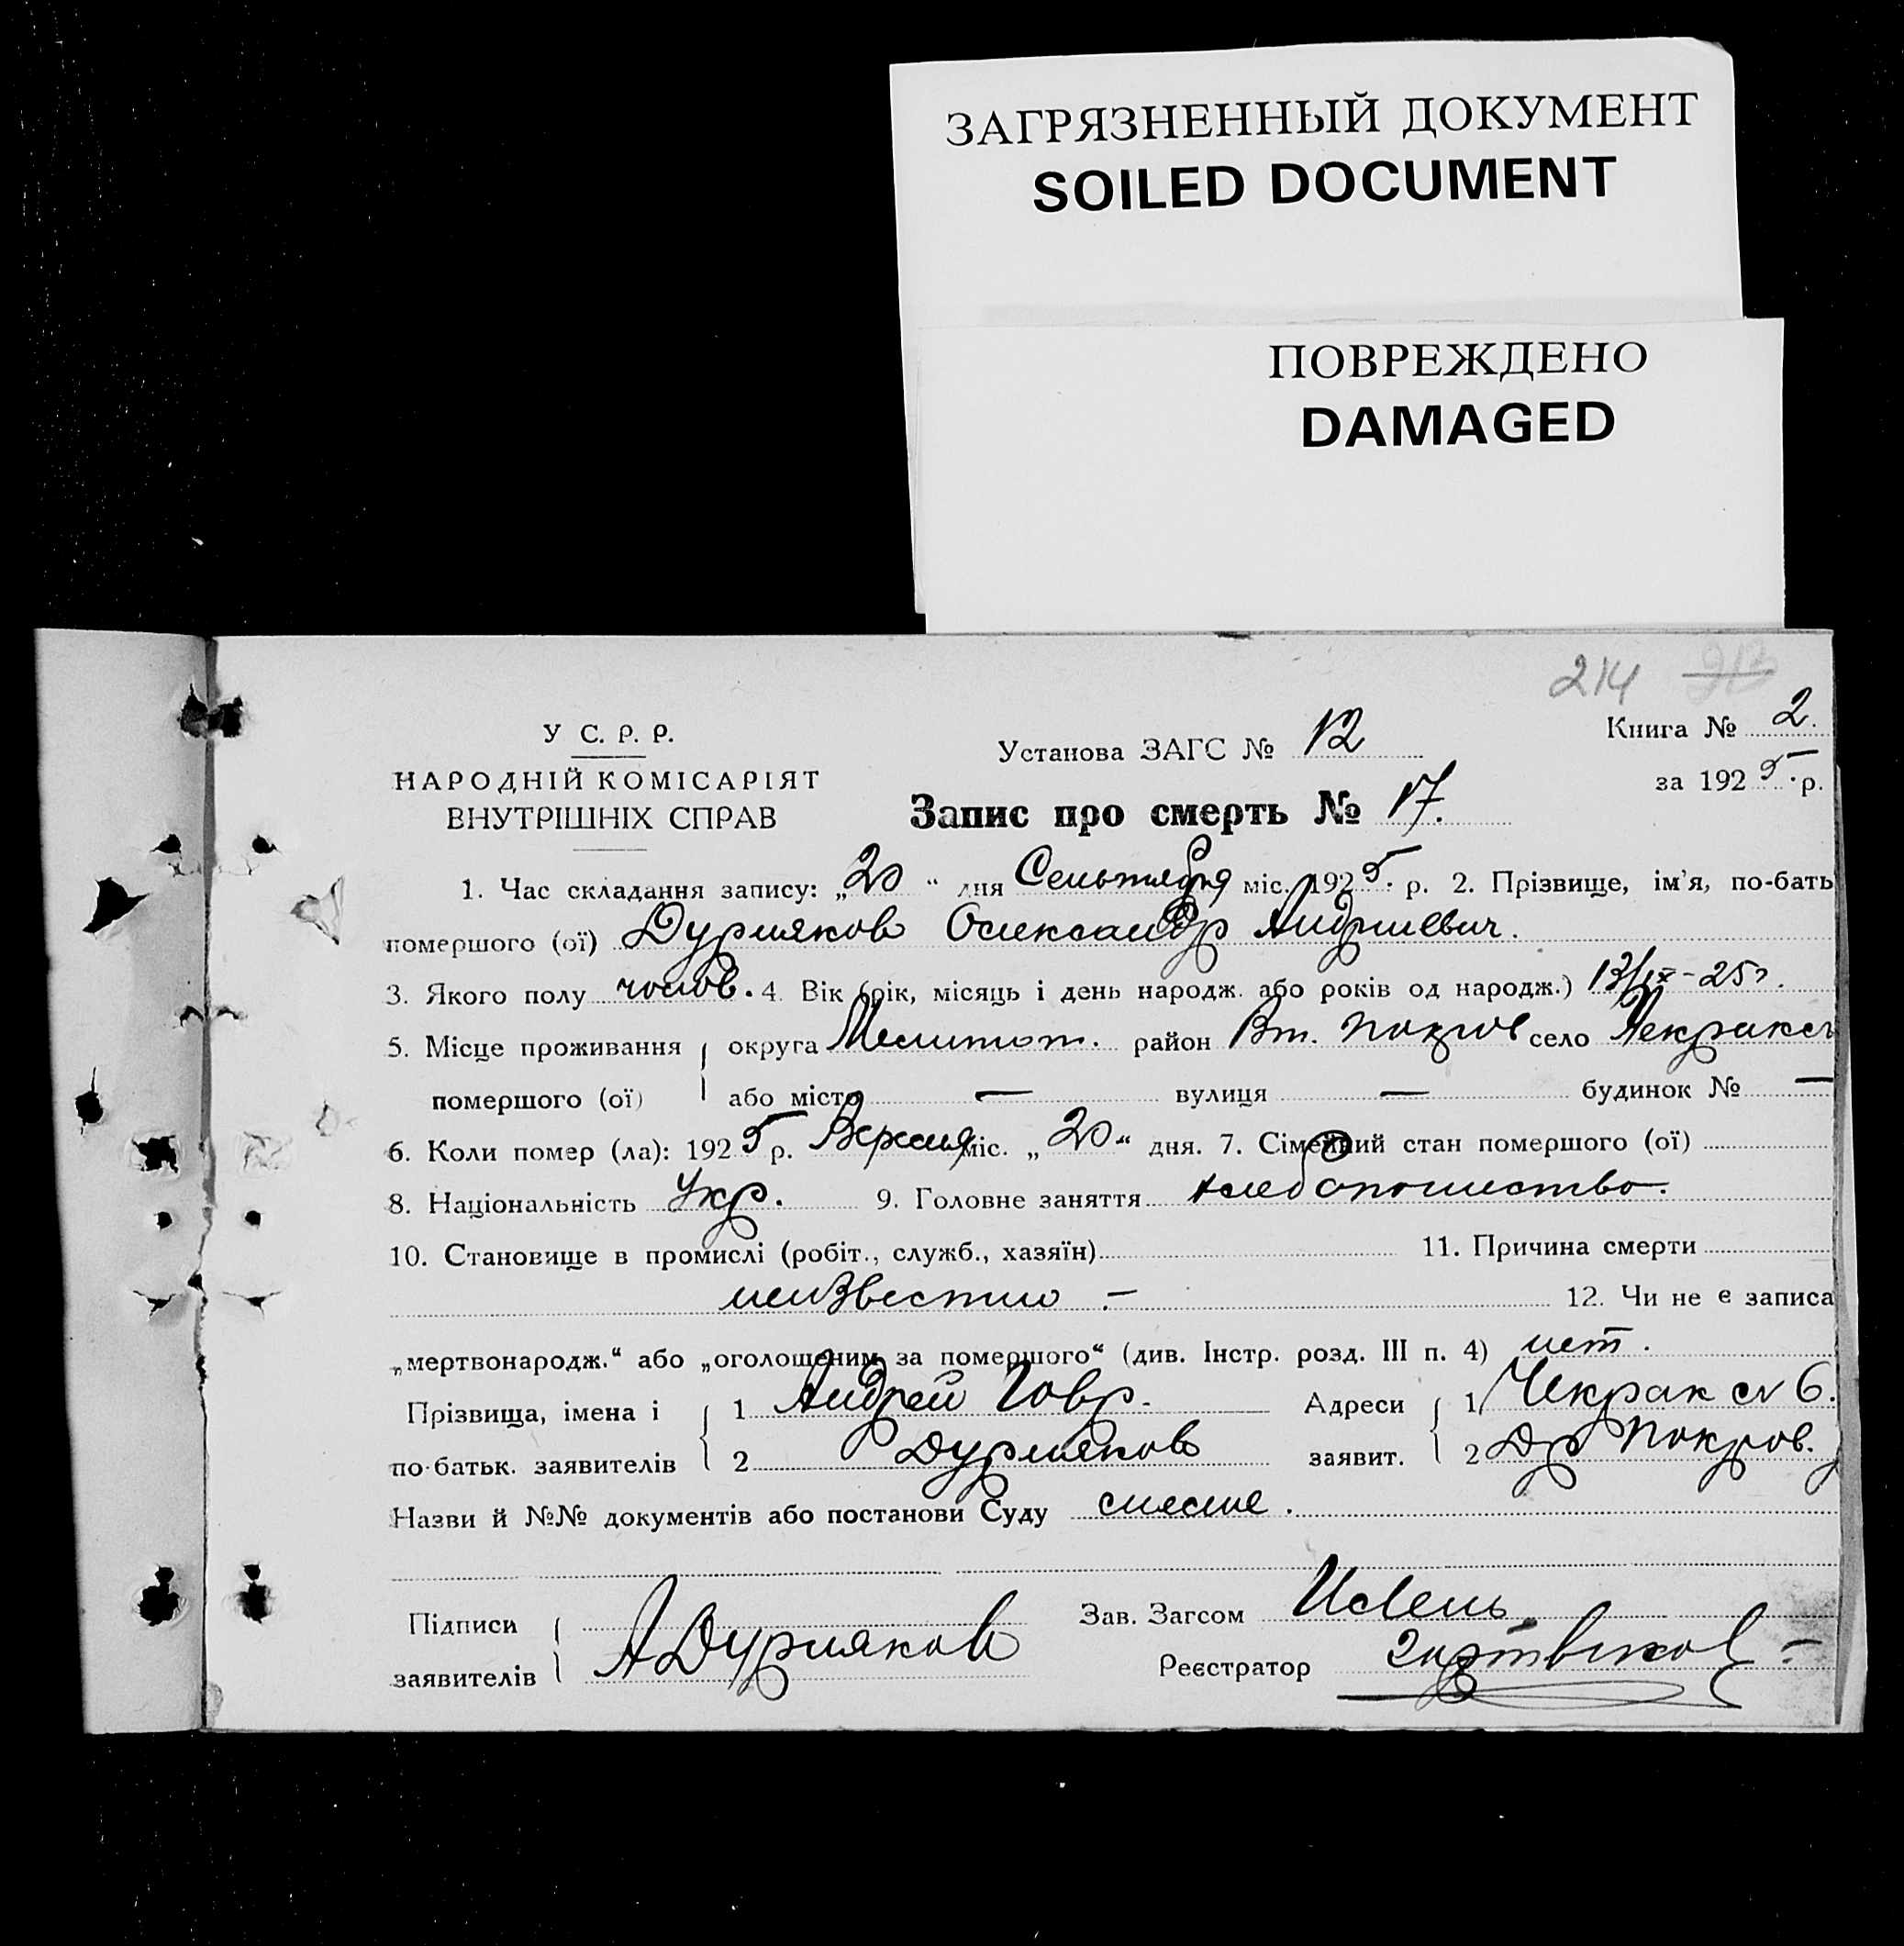 ЗАГРЯЗНЕННЫЙ ДОКУМЕНТ
SOILED DOCUMENT
ПОВРЕЖДЕНО
DAMAGED
214
У С. Р. Р.
НАРОДНІЙ КОМІСАРІЯТ
ВНУТРІШНІХ СПРАВ
Установа ЗАГС № 12
Книга № 2.
за 1925 р.
Запис про смерть № 17.
1. Час складання запису: „20“ дня Сентября міс. 1925 р. 2. Прізвище, ім'я, по-бать
помершого (ої) Дурняков Олександр Андриевич.
3. Якого полу чолов. 4. Вік (рік, місяць і день народж. або років од народж.) 13/IX-25г.
5. Місце проживання округа Мелитоп. район Вт. Покров село
помершого (ої) або місто — вулиця — будинок № —
6. Коли помер (ла): 1925 р. Вересня міс. „20“ дня. 7. Сімейний стан помершого (ої)
8. Національність Укр. 9. Головне заняття хлебопашество.
10. Становище в промислі (робіт., служб., хазяїн) 11. Причина смерти
неизвестно.— 12. Чи не є записа
„мертвонародж.“ або „оголошеним за помершого“ (див. Інстр. розд. III п. 4) нет.
Прізвища, імена і 1 Андрей Гавр. Адреси 1 Чекрак
по-батьк. заявителів 2 Дурняков заявит. 2 Покров.
Назви й №№ документів або постанови Суду
Підписи Зав. Загсом
заявителів АДурняков Реєстратор